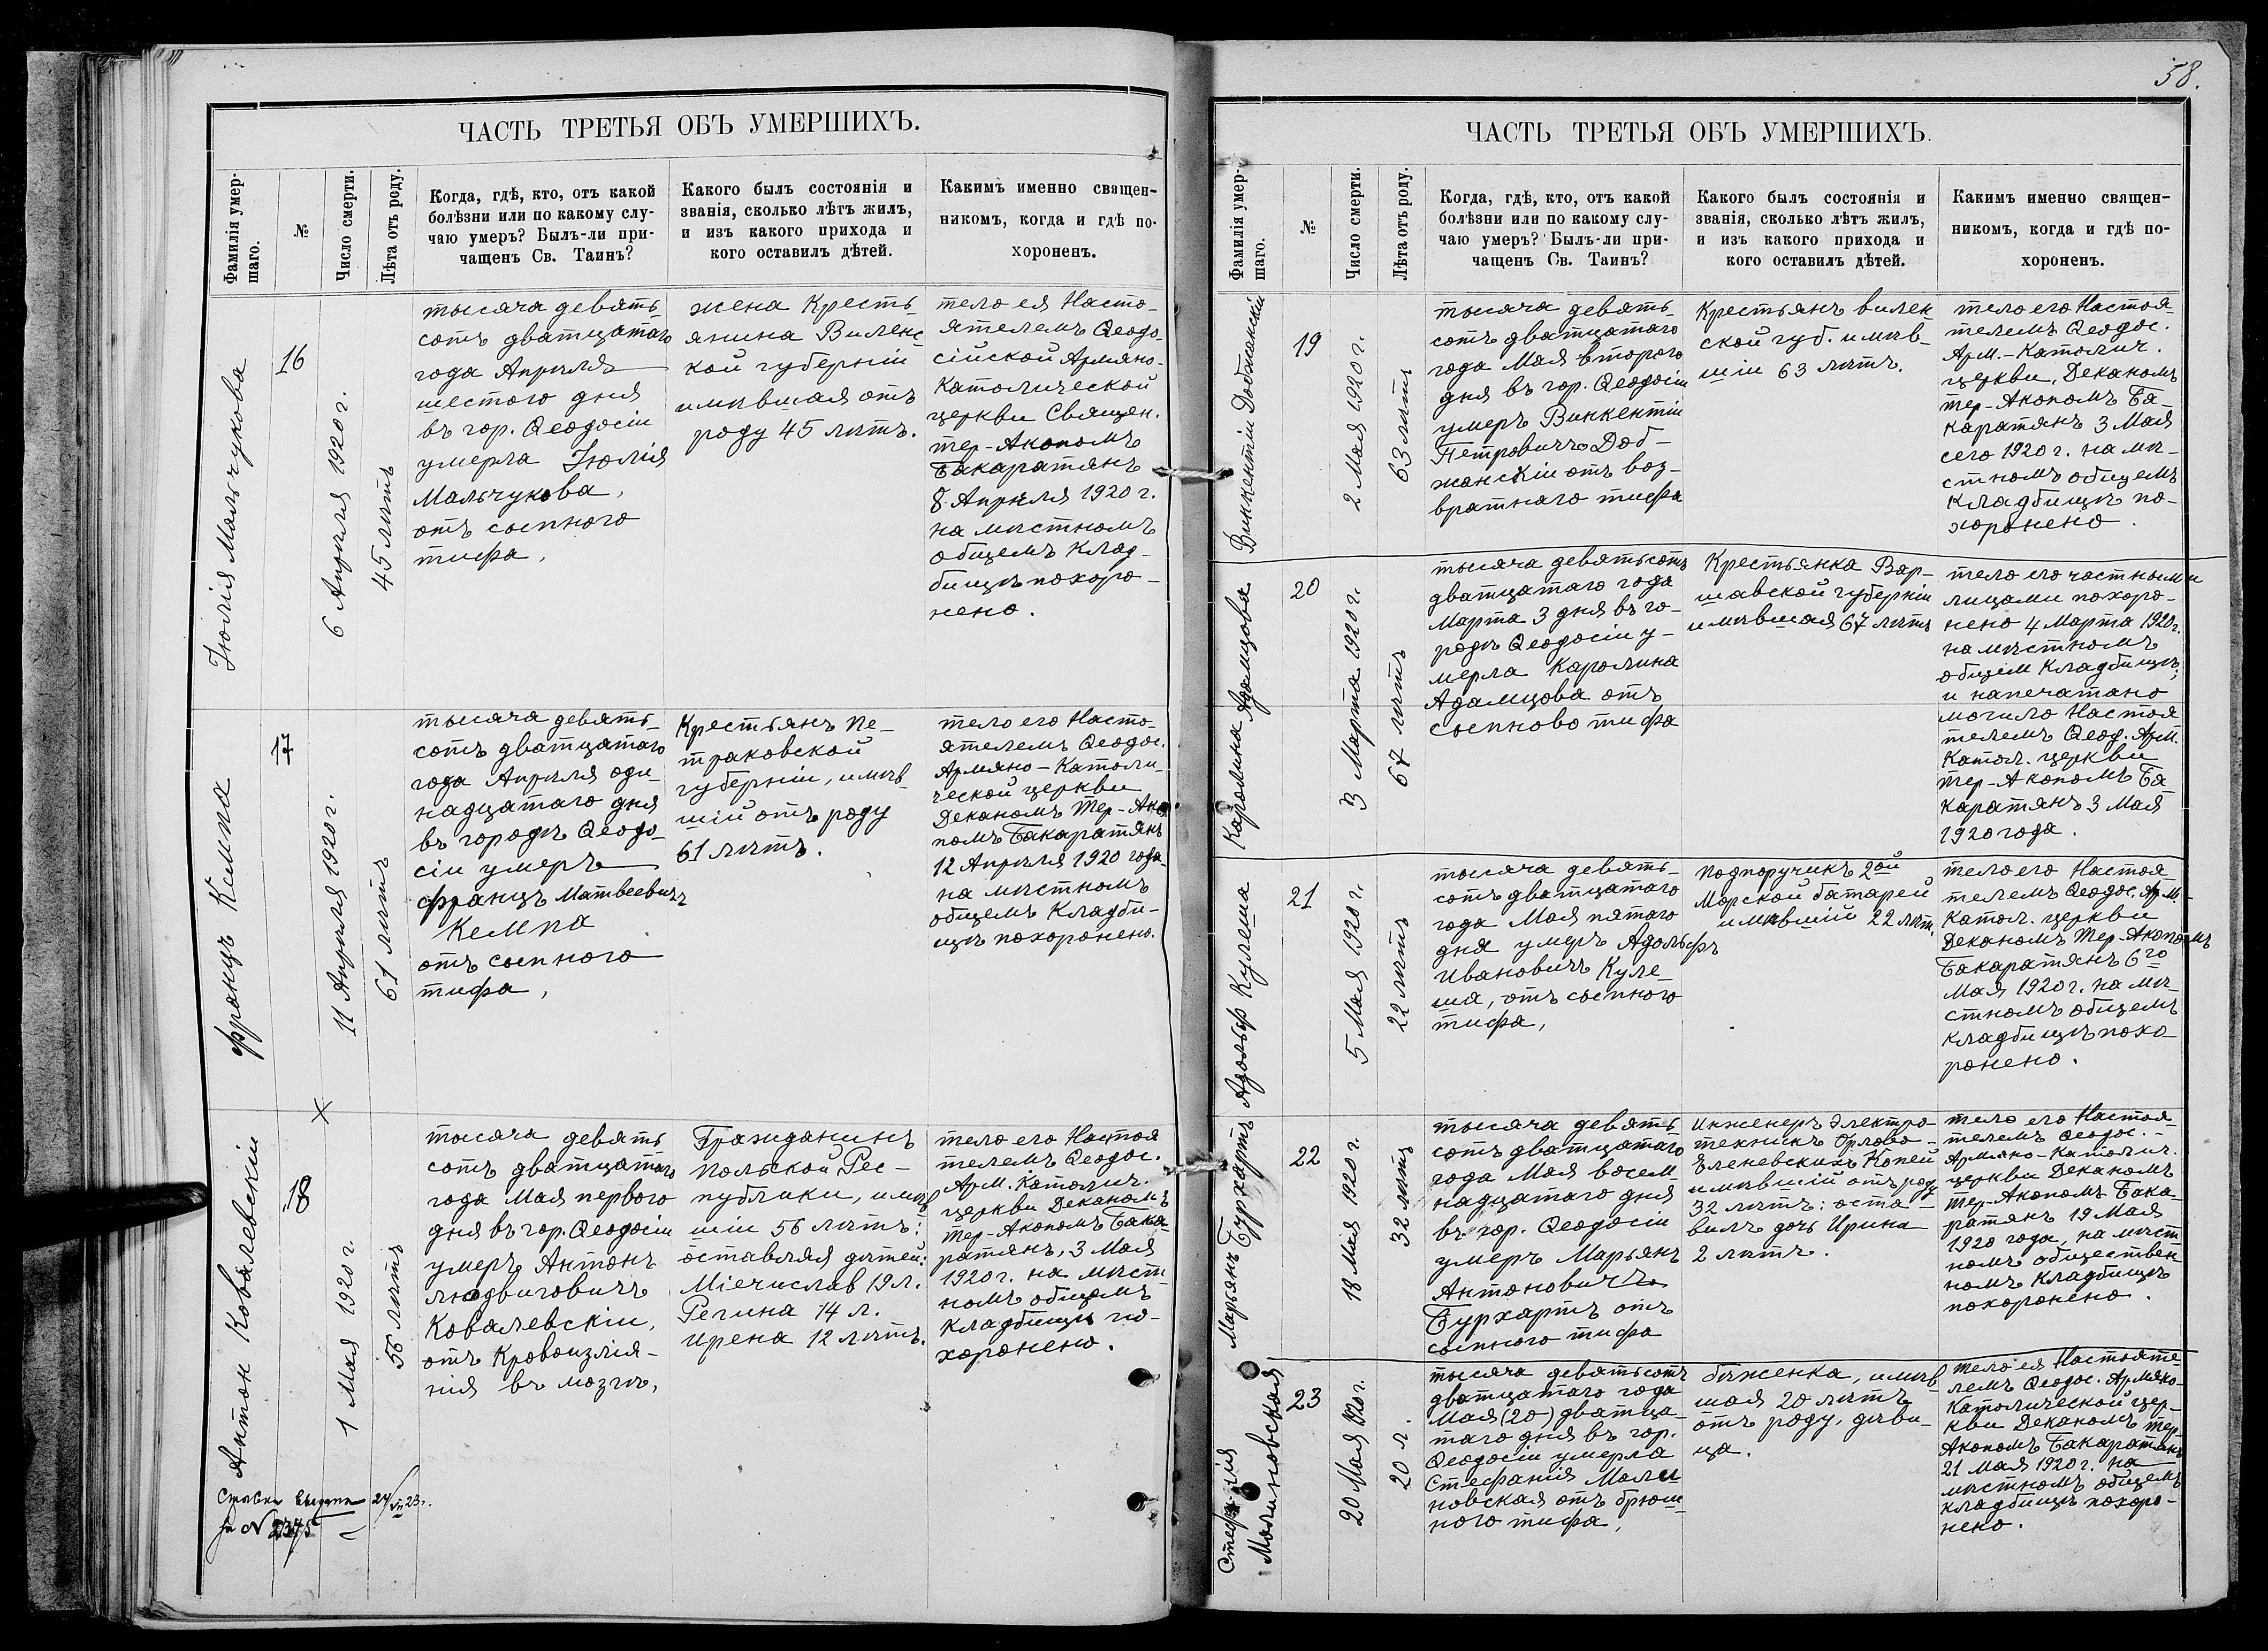 58.
ЧАСТЬ ТРЕТЬЯ ОБЪ УМЕРШИХЪ.
Фамилія умер-
шаго.
№
Число смерти.
Лѣта отъ роду.
Когда, гдѣ, кто, отъ какой
болѣзни или по какому слу-
чаю умеръ? Былъ-ли при-
чащенъ Св. Таинъ?
Какого былъ состоянія и
званія, сколько лѣтъ жилъ,
и изъ какого прихода и
кого оставилъ дѣтей.
Какимъ именно священ-
никомъ, когда и гдѣ по-
хороненъ.
Юлія Мальчукова
16
6 Апрѣля 1920 г.
45 лѣтъ
тысяча девять
сотъ дватцатаго
года Апрѣля
шестого дня
въ гор. Ѳеодосіи
умерла Юлія
Мальчукова,
отъ сыпного
тифа,
жена Кресть
янина Виленс
кой губерніи
имѣвшая отъ
роду 45 лѣтъ.
тело ея Насто-
ятелемъ Ѳеодо-
сійской Армяно-
Католической
церкви Священ.
тер-Акопомъ
Бакаратянъ
8 Апрѣля 1920 г.
на мѣстномъ
общемъ Клад-
бищѣ похоро-
нено.
Францъ Кемпа
17
11 Апрѣля 1920 г.
61 лѣтъ
тысяча девять
сотъ дватцатаго
года Апрѣля оди-
надцатаго дня
въ городѣ Ѳеодо-
сіи умеръ
Францъ Матвеевичъ
Кемпа
отъ сыпного
тифа,
Крестьянъ Пе-
траковской
губерніи, имѣв-
шій отъ роду
61 лѣтъ.
тело его Насто-
ятелемъ Ѳеодос.
Армяно-Католи-
ческой церкви
Деканомъ Тер-Ако
помъ Бакаратянъ
12 Апрѣля 1920 года
на мѣстномъ
общемъ Кладби-
щѣ похоронено.
Антон Ковалевскіи
18
1 Мая 1920 г.
56 лѣтъ
тысяча девять
сотъ дватцатаго
года Мая первого
дня въ гор. Ѳеодосіи
умеръ Антонъ
людвиговичъ
Ковалевскіи,
отъ Кровоизлія-
нія въ мозгъ,
Гражданинъ
Польской Рес-
публики, имѣв
шіи 56 лѣтъ:
оставляя дѣтей:
Міечислав 19 л.
Регина 14 л.
Ирена 12 лѣтъ.
тело его Настоя
телемъ Ѳеодос.
Арм. Католич.
церкви Деканомъ
тер-Акопомъ Бака
ратянъ, 3 Мая
1920 г. на мѣст
номъ общемъ
кладбищѣ по-
хоронено.
24/VII 23.
за № 2375
ЧАСТЬ ТРЕТЬЯ ОБЪ УМЕРШИХЪ.
Фамилія умер-
шаго.
№
Число смерти.
Лѣта отъ роду.
Когда, гдѣ, кто, отъ какой
болѣзни или по какому слу-
чаю умеръ? Былъ-ли при-
чащенъ Св. Таинъ?
Какого былъ состоянія и
званія, сколько лѣтъ жилъ,
и изъ какого прихода и
кого оставилъ дѣтей.
Какимъ именно священ-
никомъ, когда и гдѣ по-
хороненъ.
Виккентіи Добжанскій
19
2 Мая 1920 г.
63 лѣтъ
тысяча девять
сотъ дватцатаго
года Мая второго
дня въ гор. Ѳеодосіи
умеръ Виккентіи
Петровичъ Доб-
жанскіи отъ воз-
вратнаго тифа
Крестьянъ вилен
ской губ. имѣв-
шіи 63 лѣтъ.
тело его Настоя
телемъ Ѳеодос.
Арм.-Католич.
церкви, Деканомъ
тер-Акопомъ Ба-
каратянъ 3 Мая
сего 1920 г. на мѣ-
стномъ общемъ
Кладбищѣ по-
хоронено.
Каролина Адамцова
20
3 Марта 1920 г.
67 лѣтъ
тысяча девятьсотъ
дватцатаго года
Марта 3 дня въ го-
родѣ Ѳеодосіи у-
мерла Каролина
Адамцова отъ
сыпново тифа
Крестьянка Вар-
шавской губерніи
имѣвшая 67 лѣтъ
тело его частными
лицами похоро-
нено 4 Марта 1920 г.
на мѣстномъ
общем Кладбищѣ,
и напечатано
могило Настоя
телемъ Ѳеод. Арм.
Катол. церкви
тер-Акопомъ Ба
каратянъ 3 Мая
1920 года.
Адольф Кулеша
21
5 Мая 1920 г.
22 лѣтъ
тысяча девять-
сотъ дватцатаго
года Мая пятаго
дня умеръ Адольфъ
Ивановичъ Куле-
ша, отъ сыпного
тифа,
Подпоручикъ 2ой
Морской батареи
имѣвшій 22 лѣт.
тело его Настоя
телемъ Ѳеодос. Арм.-
Катол. церкви
Деканомъ Тер-Акопомъ
Бакаратянъ 6го
Мая 1920 г. на мѣ-
стномъ общемъ
кладбищѣ похо-
ронено.
Марьянъ Бурхартъ
22
18 Мая 1920 г.
32 лѣтъ
тысяча девять
сотъ дватцатаго
года Мая восем-
надцатаго дня
въ гор. Ѳеодосіи
умеръ Марьянъ
Антоновичъ
Бурхартъ отъ
сыпного тифа
Инженеръ Электро-
техникъ Орлово-
Еленевскихъ Копей
имѣвшій отъ роду
32 лѣтъ: оста-
вилъ дочь Ирина
2 лѣтъ.
тело его Настоя
телемъ Ѳеодос.-
Армяно-Католич.
церкви Деканомъ
Тер-Акопомъ Бака-
ратянъ 19 Мая
1920 года, на мѣст
номъ обществен-
номъ Кладбищѣ
похоронено.
Стефанія
Малиновская
23
20 Мая 1920 г.
20 л.
тысяча девятьсотъ
дватцатаго года
Мая (20) дватца-
таго дня въ гор.
Ѳеодосіи умерла
Стефанія Мали
новская отъ брюш
ного тифа,
беженка, имѣв
шая 20 лѣтъ
отъ роду, дѣви-
ца.
тело ея Настояте-
лемъ Ѳеодос. Армяно-
Католической цер-
кви Деканомъ тер-
Акопомъ Бакаратянъ
21 Мая 1920 г. на
мѣстномъ общемъ
кладбищѣ похоро-
нено.